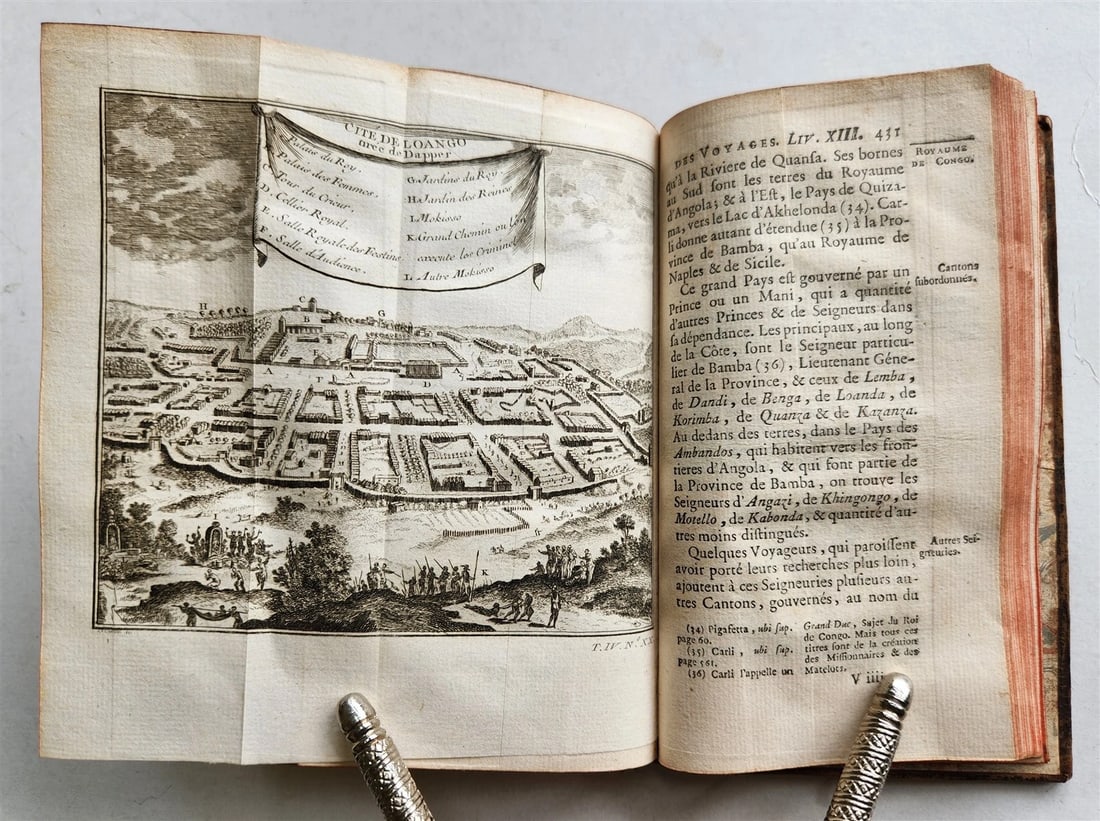 CITE DE LOANGO
tirée de Dapper
A. Palais du Roy.
B. Palais des Femmes.
C. Tour du Crieur.
D. Cellier Royal.
E. Salle Royale des Festins
F. Salle d'Audience.
G. Jardins du Roy.
H. Jardin des Reines
I. Mokisso
K. Grand Chemin ou l'on
execute les Criminels
L. Autre Mokisso
H
C
G
B
A
F
A
D
A
K
T. IV. N.º XX
DES VOYAGES. LIV. XIII. 431
ROYAUME
DE CONGO.
qu'à la Riviere de Quansa. Ses bornes
au Sud font les terres du Royaume
d'Angola; & à l'Est, le Pays de Quiza-
ma, vers le Lac d'Akhelonda (34). Car-
li donne autant d'étendue (35) à la Pro-
vince de Bamba, qu'au Royaume de
Naples & de Sicile.
Ce grand Pays est gouverné par un
Cantons
subordonnés.
Prince ou un Mani, qui a quantité
d'autres Princes & de Seigneurs dans
sa dépendance. Les principaux, au long
de la Côte, sont le Seigneur particu-
lier de Bamba (36), Lieutenant Géne-
ral de la Province, & ceux de Lemba,
de Dandi, de Benga, de Loanda, de
Korimba, de Quanza & de Kazanza.
Au dedans des terres, dans le Pays des
Ambandos, qui habitent vers les fron-
tieres d'Angola, & qui font partie de
la Province de Bamba, on trouve les
Seigneurs d'Angazi, de Khingongo, de
Motello, de Kabonda, & quantité d'au-
tres moins distingués.
Quelques Voyageurs, qui paroissent
Autres Sei-
gneuries.
avoir porté leurs recherches plus loin,
ajoutent à ces Seigneuries plusieurs au-
tres Cantons, gouvernés, au nom du
(34) Pigafetta, ubi sup.
page 60.
(35) Carli, ubi sup.
page 561.
(36) Carli l'appelle un
Grand Duc, Sujet du Roi
de Congo. Mais tous ces
titres sont de la création
des Missionnaires & des
Matelots.
V iiij